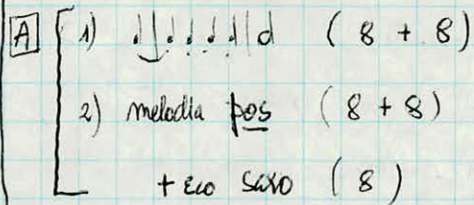 A 1) ♩♩♩♩♩♩|d (8 + 8)
2) melodia pos (8 + 8)
+ Eco saxo (8)